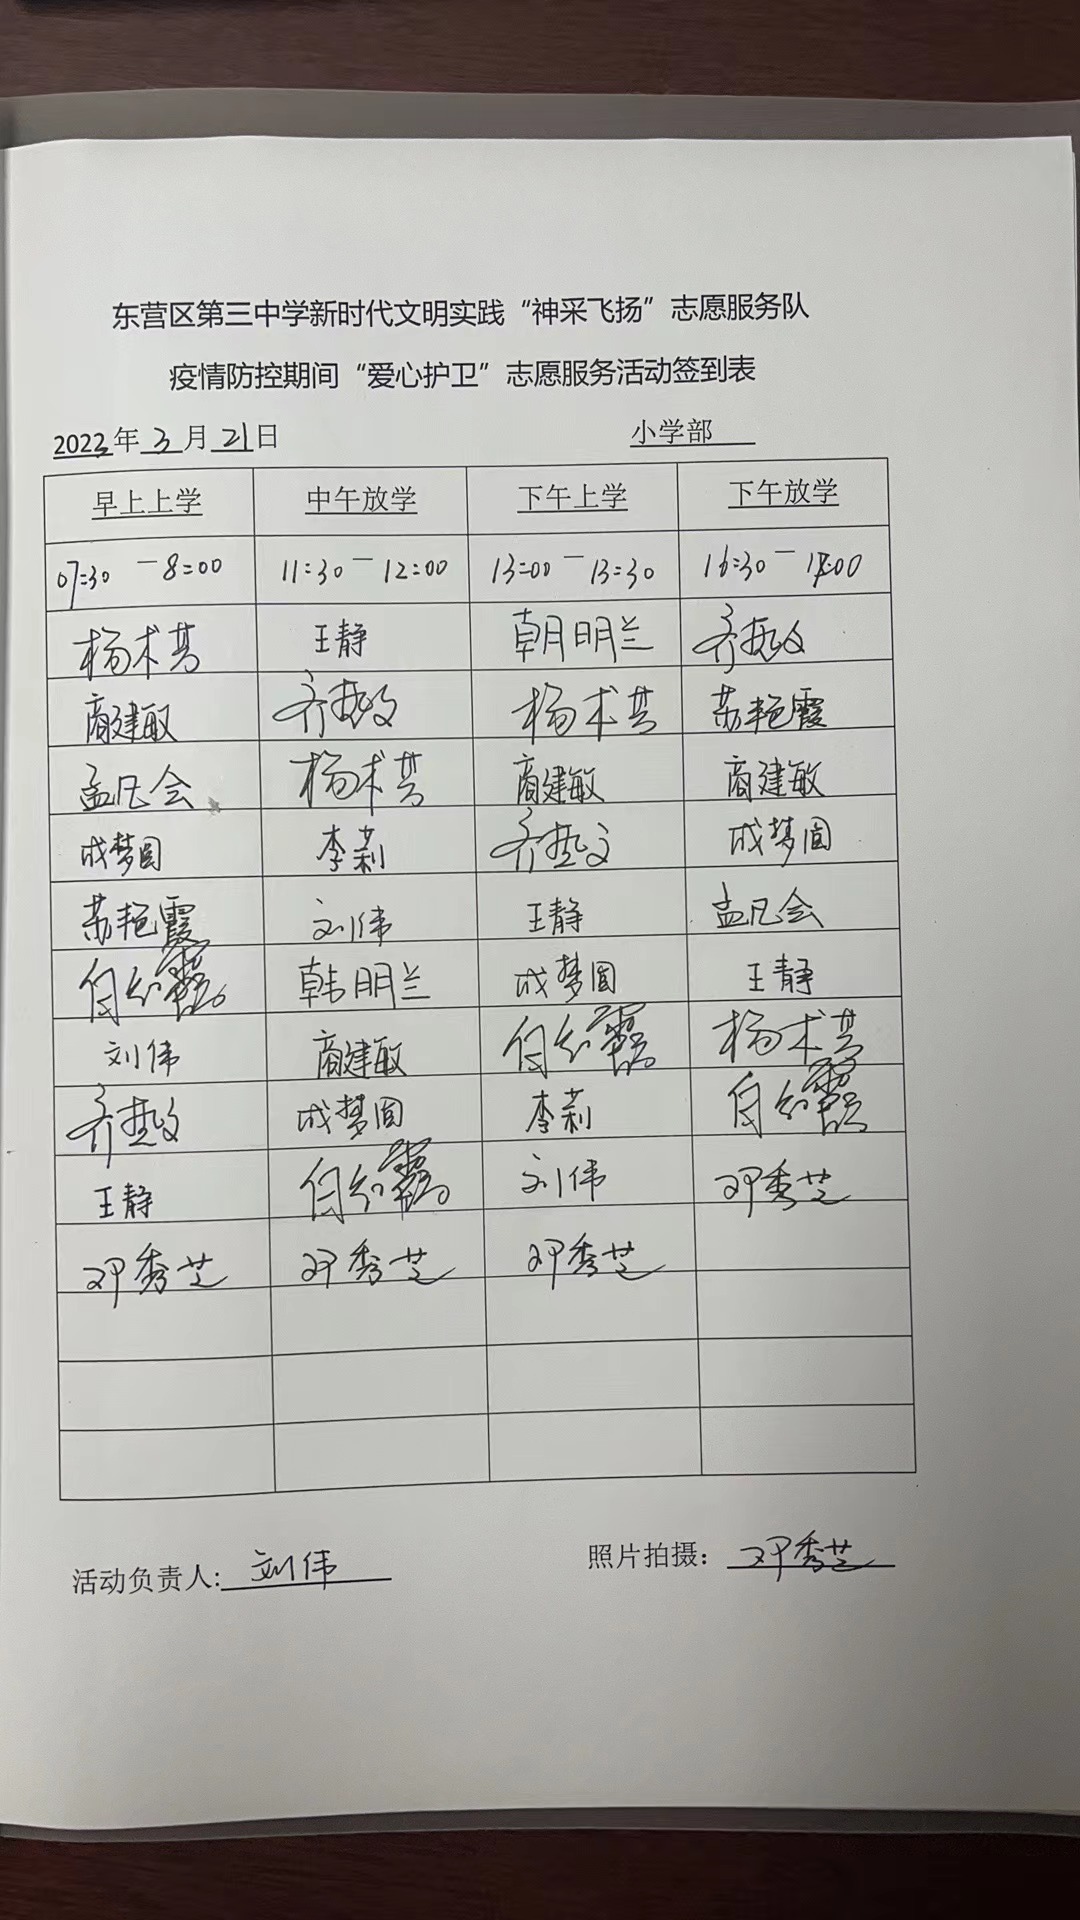 东营区第三中学新时代文明实践“神采飞扬”志愿服务队
疫情防控期间“爱心护卫”志愿服务活动签到表
2023年 3 月 21 日 小学部
早上上学 中午放学 下午上学 下午放学
07:30 — 8:00 11:30 — 12:00 13:00 — 13:30 16:30 — 18:00
杨术芸 王静 韩明兰
商建敏 杨术芸 苏艳霞
孟凡会 杨术芸 商建敏 商建敏
成梦圆 李莉 成梦圆
苏艳霞 刘伟 王静 孟凡会
韩明兰 成梦圆 王静
刘伟 商建敏 杨术芸
成梦圆 李莉
王静 刘伟 邓秀芝
邓秀芝 邓秀芝 邓秀芝
活动负责人: 刘伟 照片拍摄: 邓秀芝